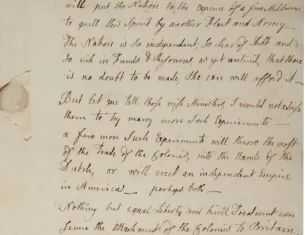 will put the Nation to the expence of a few Millions
to quell this Spirit by another Fleet and Army.
The Nation is so independent, so clear of Debt and
so rich in Funds & Resources, as yet untried, that there
is no doubt to be made, she can well afford it.
But let me tell those wise Ministers, I would not advise
them to try many more such Experiments
a few more such Experiments will throw the most
of the Trade of the Colonies, into the Hands of the
Dutch, or will erect an independent Empire
in America perhaps both
Nothing but equal Liberty and kind Treatment can
secure the Attachment of the Colonies to Britain